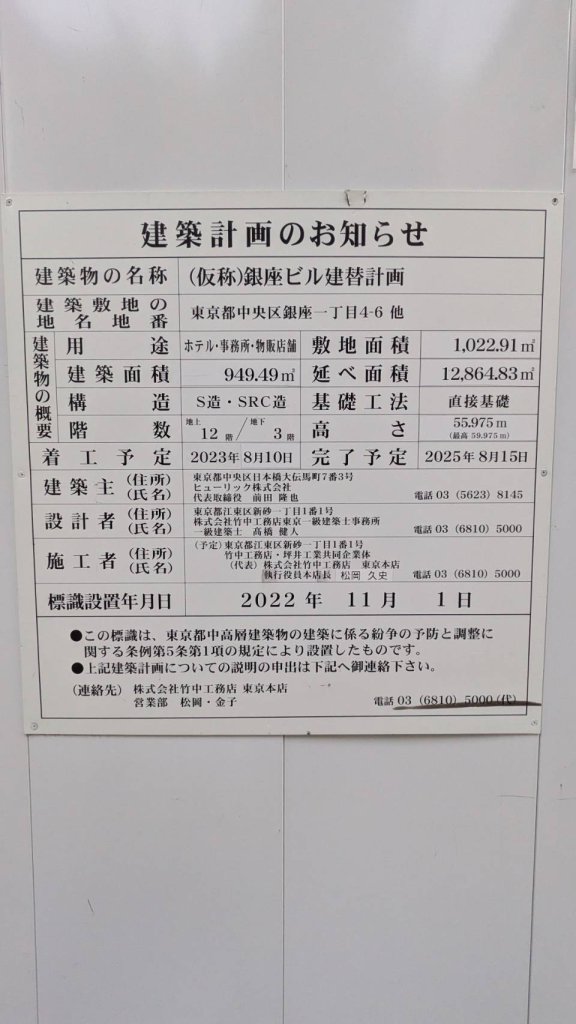 建築計画のお知らせ
建築物の名称 (仮称)銀座ビル建替計画
建築敷地の地名地番 東京都中央区銀座一丁目4-6 他
建築物の概要
用途 ホテル・事務所・物販店舗 敷地面積 1,022.91㎡
建築面積 949.49㎡ 延べ面積 12,864.83㎡
構造 S造・SRC造 基礎工法 直接基礎
階数 地上 12 階 / 地下 3 階 高さ 55.975m (最高 59.975m)
着工予定 2023年8月10日 完了予定 2025年8月15日
建築主 (住所) (氏名)
東京都中央区日本橋大伝馬町7番3号
ヒューリック株式会社
代表取締役 前田 隆也 電話 03 (5623) 8145
設計者 (住所) (氏名)
東京都江東区新砂一丁目1番1号
株式会社竹中工務店東京一級建築士事務所
一級建築士 髙橋 健人 電話 03 (6810) 5000
施工者 (住所) (氏名)
(予定)東京都江東区新砂一丁目1番1号
竹中工務店・坪井工業共同企業体
(代表) 株式会社竹中工務店 東京本店
執行役員本店長 松岡 久史 電話 03 (6810) 5000
標識設置年月日 2022年 11月 1日
●この標識は、東京都中高層建築物の建築に係る紛争の予防と調整に
関する条例第5条第1項の規定により設置したものです。
●上記建築計画についての説明の申出は下記へ御連絡下さい。
(連絡先) 株式会社竹中工務店 東京本店
営業部 松岡・金子 電話 03 (6810) 5000 (代)